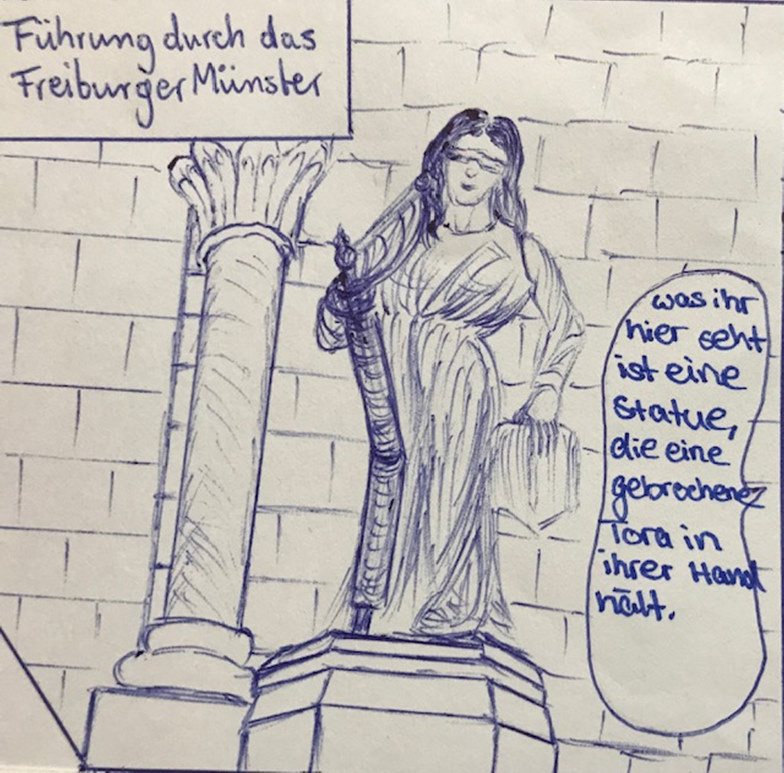 Führung durch das
Freiburger Münster
was ihr
hier seht
ist eine
Statue,
die eine
gebrochene
Tora in
ihrer Hand
hält.